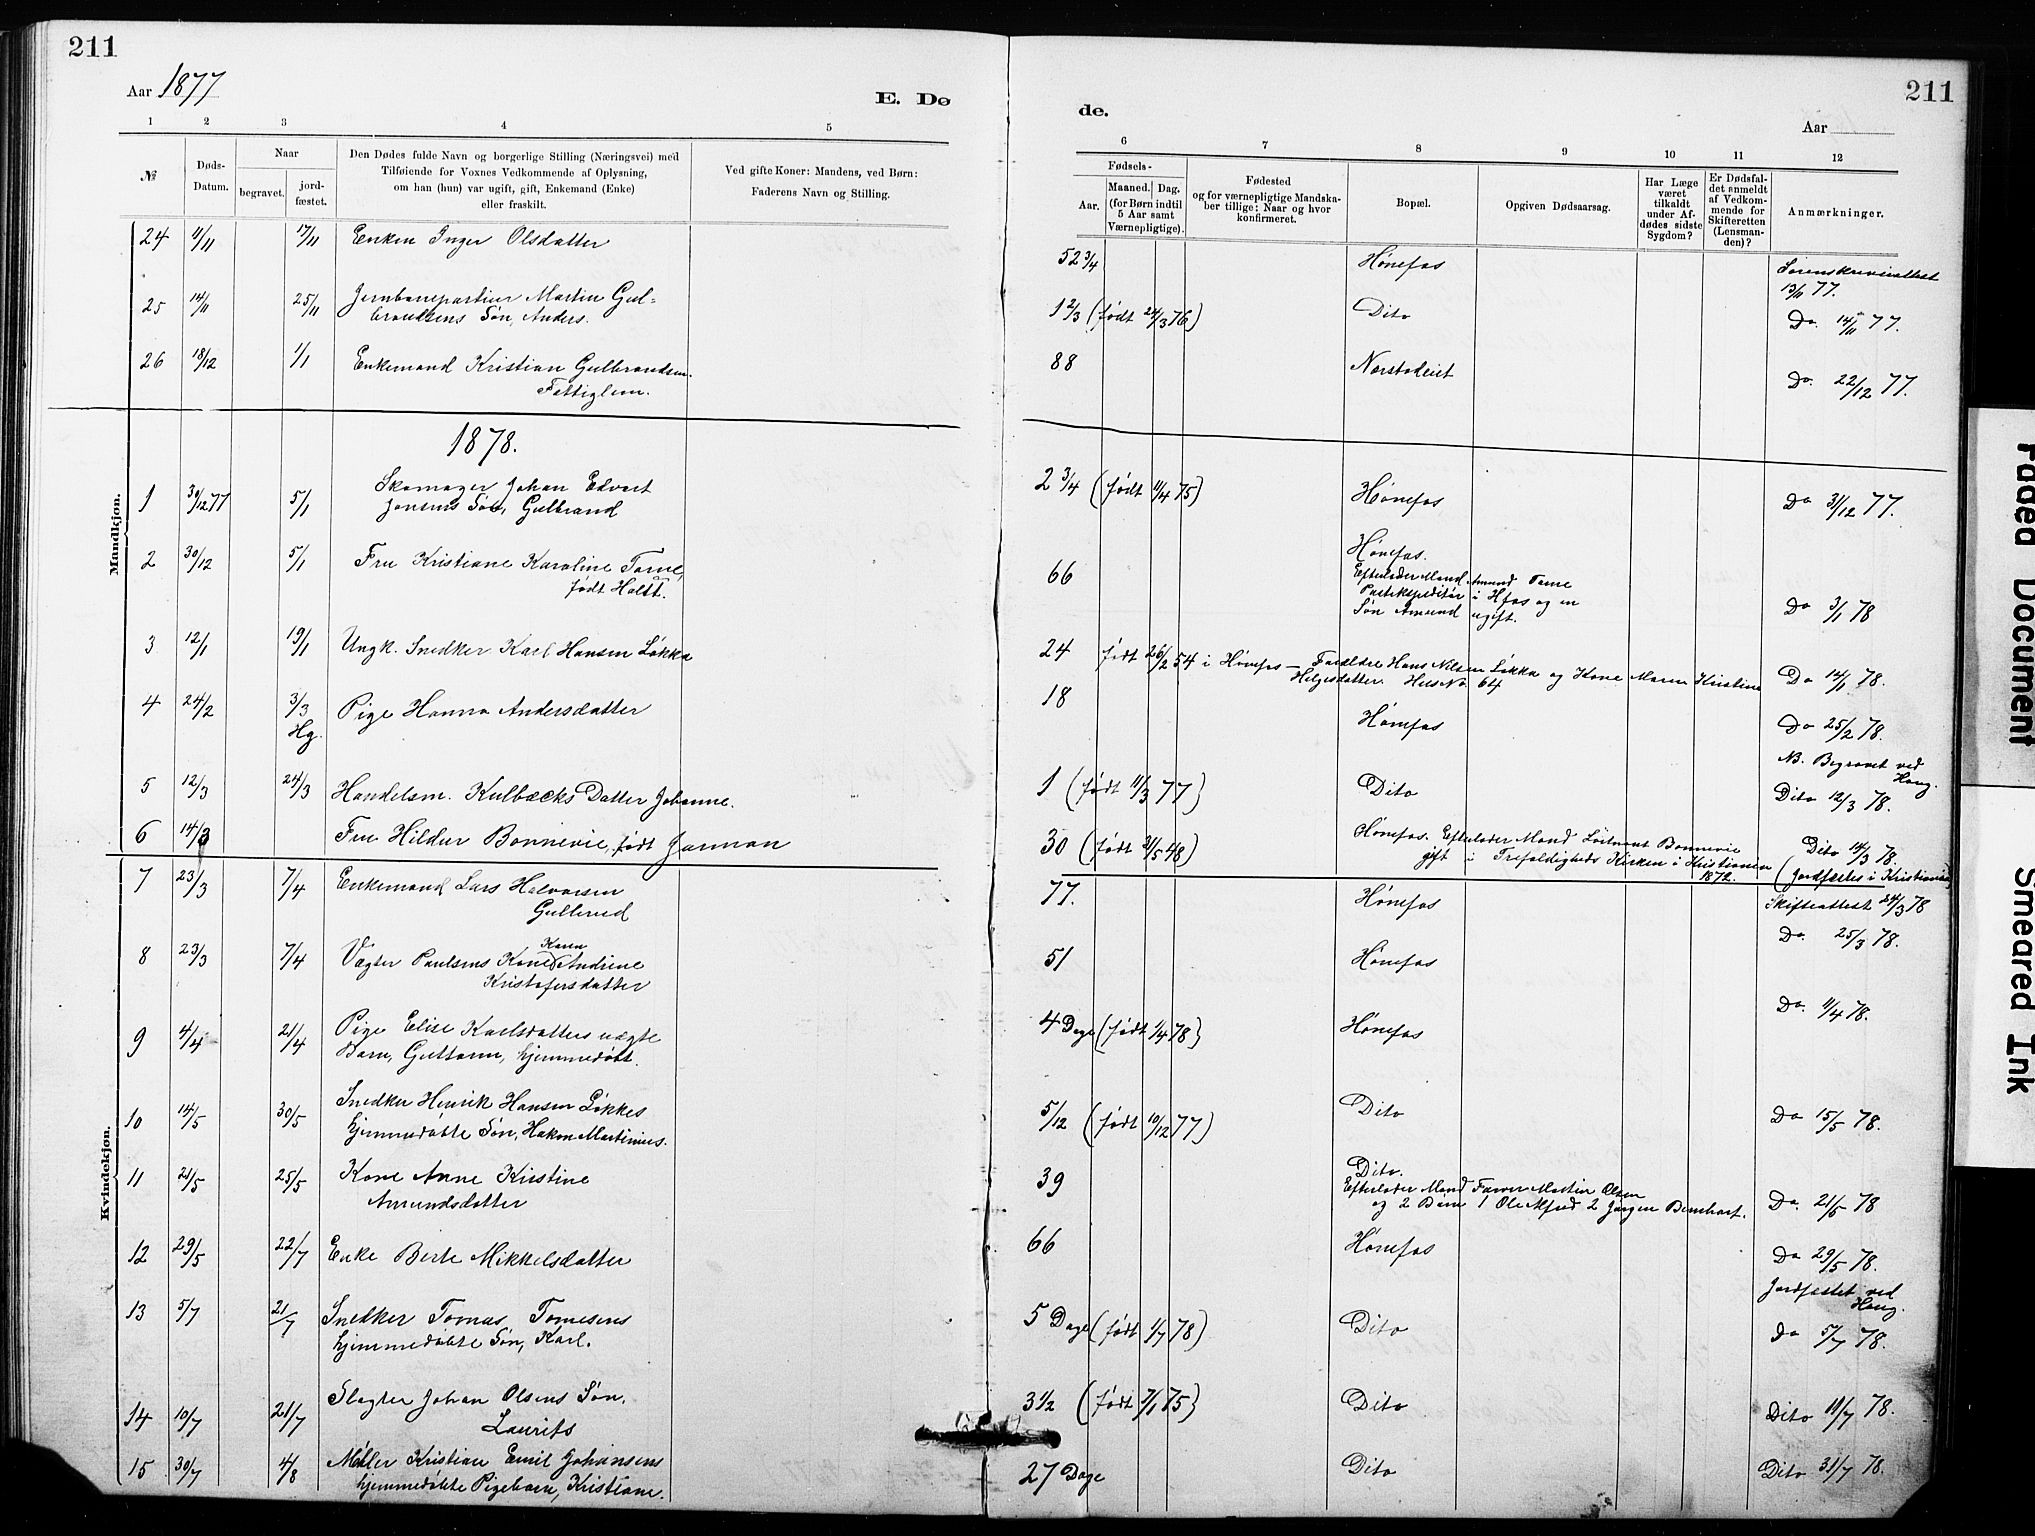 211
Aar 1877
E. Dø
1 2 3 4 5
№
Døds-Datum.
Naar
begravet.
jord-fæstet.
Den Dødes fulde Navn og borgerlige Stilling (Næringsvei) med
Tilføiende for Voxnes Vedkommende af Oplysning,
om han (hun) var ugift, gift, Enkemand (Enke)
eller fraskilt.
Ved gifte Koner: Mandens, ved Børn:
Faderens Navn og Stilling.
24 11/11 17/11 Enken Inger Olsdatter
25 14/11 25/11 Jernbanepartiur Martin Gul=
brandsens Søn, Anders.
26 18/12 1/1 Enkemand Kristian Gulbrandsen.
Fattiglem.
1878.
Mandkjøn.
1 30/12 77 5/1 Skomager Johan Edvart
Jonsens Søn, Gulbrand
2 30/12 5/1 Fru Kristiane Karoline Torne,
født Holtt.
3 12/1 19/1 Ungk. Snedker Karl Hansen Løkka
4 24/2 3/3 Pige Hanna Andersdatter
Hg.
5 12/3 24/3 Handelsm. Kulbæcks Datter Johanne.
6 14/3 Fru Hildur Bonnevie, født Jarman
7 23/3 7/4 Enkemand Lars Halvorsen
Gullerud
8 23/3 7/4 Vægter Paulsens Kone Karen Andrine
Kristofersdatter
9 4/4 21/4 Pige Elise Karlsdatters uægte
Barn, Guttorm, hjemmedøbt.
Kvindekjøn.
10 14/5 30/5 Snedker Henrik Hansen Løkkes
hjemmedøbte Søn, Hakon Martinius.
11 21/5 25/5 Kone Anne Kristine
Amundsdatter
12 29/5 22/7 Enke Berte Mikkelsdatter
13 5/7 21/7 Snedker Tomas Tomesens
hjemmedøbte Søn, Karl.
14 10/7 21/7 Slagter Johan Olsens Søn,
Laurits
15 30/7 4/8 Møller Kristian Emil Johansens
hjemmedøbte Pigebarn, Kristiane.
211
de.
Aar
6 7 8 9 10 11 12
Fødsels-
Aar.
Maaned. Dag.
(for Børn indtil
5 Aar samt
Værnepligtige).
Fødested
og for værnepligtige Mandska-
ber tillige: Naar og hvor
konfirmeret.
Bopæl.
Opgiven Dødsaarsag.
Har Læge
været
tilkaldt
under Af-
dødes sidste
Sygdom?
Er Dødsfal-
det anmeldt
af Vedkom-
mende for
Skifteretten
(Lensman-
den)?
Anmærkninger.
52 3/4 Hønefos Sorenskriverattest
13/11 77.
1 2/3 (født 24/3 76) Dito Do. 14/11 77.
88 Do. 22/12 77.
2 3/4 (født 11/4 75) Hønefos Do 31/12 77.
66 Hønefos.
Efterlader Mand Amund Torne
Postekspeditør i Hfos og en
Søn Amund ugift. Do 3/1 78
24 født 26/2 54 i Hønefos — Forældre Hans Nilsen Løkka og Kone Maren Kristine
Helgesdatter. Hus No. 64 Do 14/1 78.
18 Hønefos Do 25/2 78.
NB. Begravet ved
Houg.
1 (født 11/3 77) Dito Dito 12/3 78.
30 (født 21/5 48) Hønefos. Efterlader Mand Løitnant Bonnevie
gift i Trefoldigheds Kirken i Kristiania
1872.
Dito 14/3 78.
(Jordfæstes i Kristiania)
77. Hønefos Skifteattest 24/3 78
51 Hønefos Do. 25/3 78.
4 Dage (født 1/4 78) Hønefos Do. 11/4 78.
5/12 (født 10/12 77) Dito Do 15/5 78.
39 Dito.
Efterlader Mand Farver Martin Olsen
og 2 Børn 1 Ole Alfred 2 Jørgen Bernhart. Do. 21/5 78
66 Hønefos Do 29/5 78.
Jordfæstet ved
Houg.
5 Dage (født 1/7 78) Dito Do 5/7 78.
3 1/2 (født 7/1 75) Dito Dito 11/7 78.
27 Dage Dito Dito 31/7 78.
Faded Document
Smeared Ink